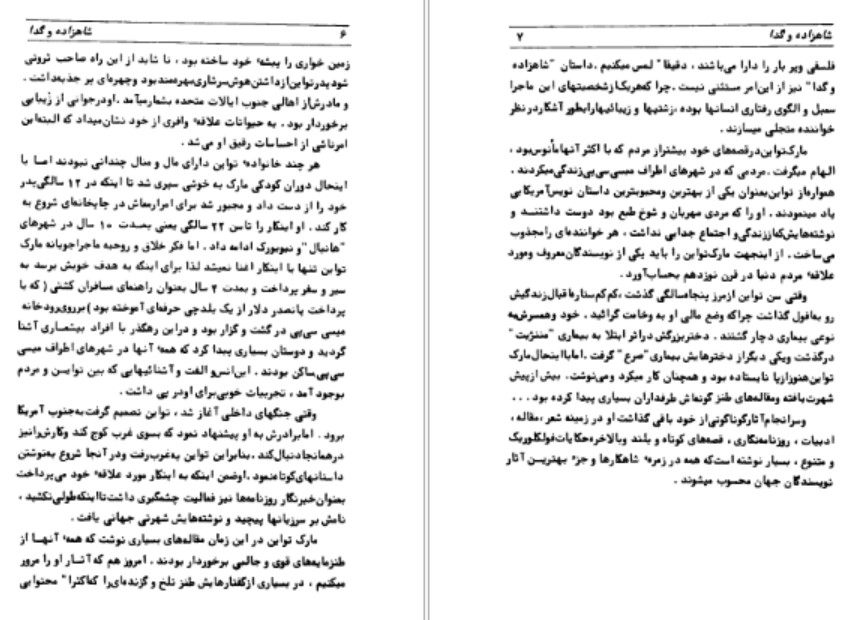 شاهزاده و گدا ۶
زمین خواری را پیشه' خود ساخته بود ، تا شاید از این راه صاحب ثروتی
شود پدر تواین از داشتن هوش سرشاری بهره مند بود و چهره‌ای پر جذبه داشت .
و مادرش از اهالی جنوب ایالات متحده بشمار میآمد . او در جوانی از زیبایی
برخوردار بود . به حیوانات علاقه' وافری از خود نشان میداد که البته این
امر ناشی از احساسات رقیق او می‌شد .
هر چند خانواده' تواین دارای مال و منال چندانی نبودند اما با
اینحال دوران کودکی مارک به خوشی سپری شد تا اینکه در ۱۲ سالگی پدر
خود را از دست داد و مجبور شد برای امرار معاش در چاپخانه‌ای شروع به
کار کند . او اینکار را تا سن ۲۲ سالگی یعنی بمدت ۱۰ سال در شهرهای
"هانیبال" و نیویورک ادامه داد . اما فکر خلاق و روحیه ماجراجویانه مارک
تواین تنها با اینکار اغنا نمیشد لذا برای اینکه به هدف خویش برسد به
سیر و سفر پرداخت و بمدت ۴ سال بعنوان راهنمای مسافران کشتی ( که با
پرداخت پانصد دلار از یک بلدچی حرفه‌ای آموخته بود ) بر روی رودخانه
میسی سی‌پی در گشت و گزار بود و در این رهگذر با افراد بیشماری آشنا
گردید و دوستان بسیاری پیدا کرد که همه' آنها در شهرهای اطراف میسی
سی‌پی ساکن بودند . این انس و الفت و آشنائیهایی که بین تواین و مردم
بوجود آمد ، تجربیات خوبی برای او در پی داشت .
وقتی جنگهای داخلی آغاز شد ، تواین تصمیم گرفت به جنوب آمریکا
برود . اما برادرش به او پیشنهاد نمود که بسوی غرب کوچ کند و کارش را نیز
در همانجا دنبال کند . بنابراین تواین به غرب رفت و در آنجا شروع به نوشتن
داستانهای کوتاه نمود . او ضمن اینکه به اینکار مورد علاقه' خود می‌پرداخت
بعنوان خبرنگار روزنامه‌ها نیز فعالیت چشمگیری داشت تا اینکه طولی نکشید ،
نامش بر سر زبانها پیچید و نوشته‌هایش شهرتی جهانی یافت .
مارک تواین در این زمان مقاله‌های بسیاری نوشت که همه' آنهـا از
طنز مایه‌های قوی و جالبی برخوردار بودند . امروز هم که آثـار او را مرور
میکنیم ، در بسیاری از گفتارهایش طنز تلخ و گزنده‌ای را که اکثرا" محتوایی
شاهزاده و گدا ۷
فلسفی و پر بار را دارا می‌باشند ، دقیقا" لمس میکنیم . داستان "شاهزاده
و گدا" نیز از این امر مستثنی نیست . چرا که هر یک از شخصیتهای این ماجرا
سمبل و الگوی رفتاری انسانها بوده ، زشتیها و زیبائیها را بطور آشکار در نظر
خواننده متجلی میسازند .
مارک تواین در قصه‌های خود بیشتر از مردم که با اکثر آنها مأنوس بود ،
الهام میگرفت . مردمی که در شهرهای اطراف میسی سی‌پی زندگی میکردند .
همواره از تواین بعنوان یکی از بهترین و محبوبترین داستان نویس آمریکایی
یاد مینمودند . او را که مردی مهربان و شوخ طبع بود دوست داشتنـد و
نوشته‌هایش که از زندگی و اجتماع جدایی نداشت ، هر خواننده‌ای را مجذوب
می‌ساخت . از اینجهت مارک تواین را باید یکی از نویسندگان معروف و مورد
علاقه' مردم دنیا در قرن نوزدهم بحساب آورد .
وقتی سن تواین از مرز پنجاه سالگی گذشت ، کم کم ستاره' اقبال زندگیش
رو به افول گذاشت چرا که وضع مالی او به وخامت گرائید . خود و همسرش به
نوعی بیماری دچار گشتند . دختر بزرگش در اثر ابتلا به بیماری "مننژیت"
در گذشت و یکی دیگر از دخترهایش بیماری "صرع" گرفت . اما با اینحال مارک
تواین هنوز از پا نایستاده بود و همچنان کار میکرد و می‌نوشت . بیش از پیش
شهرت یافته و مقاله‌های طنز گونه‌اش طرفداران بسیاری پیدا کرده بود . . .
و سرانجام آثار گوناگونی از خود باقی گذاشت او در زمینه شعر ، مقاله ،
ادبیات ، روزنامه‌نگاری ، قصه‌های کوتاه و بلند و بالاخره حکایات فولکلوریک
و متنوع ، بسیار نوشته است که همه در زمره' شاهکارها و جز' بهتریـن آثار
نویسندگان جهان محسوب میشوند .